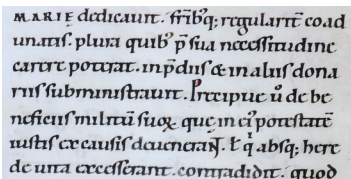 MARIĘ dedicauit. fr̄ib;q; regularit̄ coad
unatis. plura quib; p̄ sua necessitudine
carere poterat. in p̄diis & in aliis dona
riis subministrauit. Precipue ů de be
neficiis militū suoꝝ que in eī potestatē
iustis ex causis deuenerań. ł q̇ absq; here
de uita excesserant. contradidit. quod